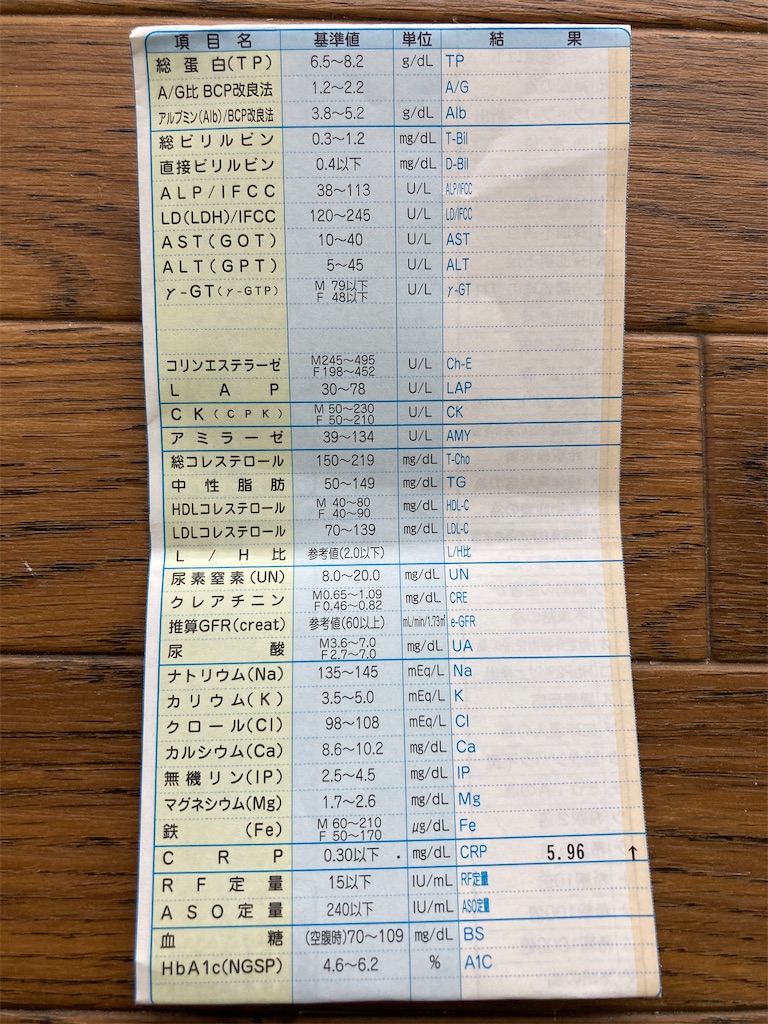 項目名 基準値 単位 結果
総蛋白(TP) 6.5～8.2 g/dL TP
A/G比 BCP改良法 1.2～2.2 A/G
アルブミン(Alb)/BCP改良法 3.8～5.2 g/dL Alb
総ビリルビン 0.3～1.2 mg/dL T-Bil
直接ビリルビン 0.4以下 mg/dL D-Bil
ALP/IFCC 38～113 U/L ALP/IFCC
LD(LDH)/IFCC 120～245 U/L LD/IFCC
AST(GOT) 10～40 U/L AST
ALT(GPT) 5～45 U/L ALT
γ-GT(γ-GTP) M 79以下 F 48以下 U/L γ-GT
コリンエステラーゼ M245～495 F198～452 U/L Ch-E
LAP 30～78 U/L LAP
CK(CPK) M 50～230 F 50～210 U/L CK
アミラーゼ 39～134 U/L AMY
総コレステロール 150～219 mg/dL T-Cho
中性脂肪 50～149 mg/dL TG
HDLコレステロール M 40～80 F 40～90 mg/dL HDL-C
LDLコレステロール 70～139 mg/dL LDL-C
L/H比 参考値(2.0以下) L/H比
尿素窒素(UN) 8.0～20.0 mg/dL UN
クレアチニン M0.65～1.09 F0.46～0.82 mg/dL CRE
推算GFR(creat) 参考値(60以上) mL/min/1.73㎡ e-GFR
尿酸 M3.6～7.0 F2.7～7.0 mg/dL UA
ナトリウム(Na) 135～145 mEq/L Na
カリウム(K) 3.5～5.0 mEq/L K
クロール(Cl) 98～108 mEq/L Cl
カルシウム(Ca) 8.6～10.2 mg/dL Ca
無機リン(IP) 2.5～4.5 mg/dL IP
マグネシウム(Mg) 1.7～2.6 mg/dL Mg
鉄(Fe) M 60～210 F 50～170 μg/dL Fe
CRP 0.30以下 . mg/dL CRP 5.96 ↑
RF定量 15以下 IU/mL RF定量
ASO定量 240以下 IU/mL ASO定量
血糖 (空腹時)70～109 mg/dL BS
HbA1c(NGSP) 4.6～6.2 % A1C